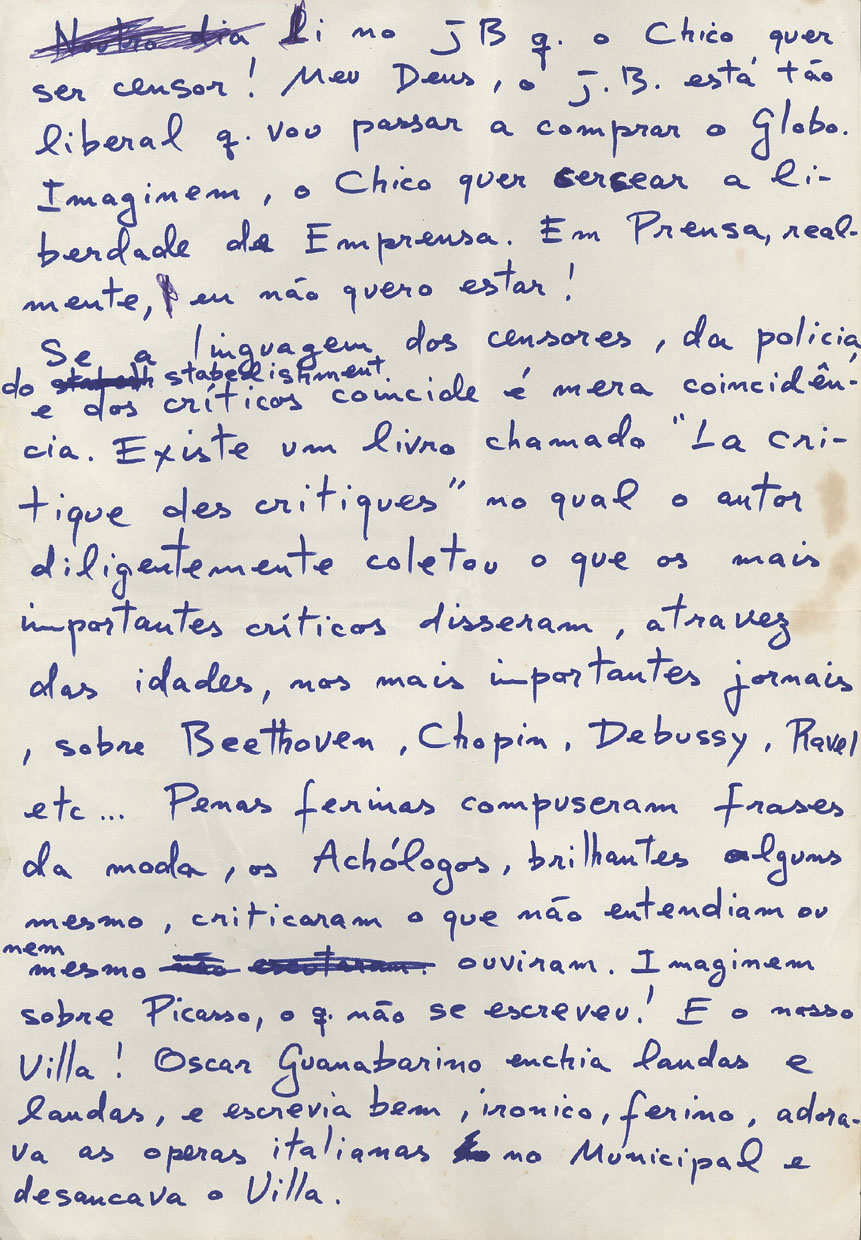 Noutro dia li no JB q. o Chico quer
ser censor! Meu Deus, o J.B. está tão
liberal q. vou passar a comprar o Globo.
Imaginem, o Chico quer sersear a li-
berdade de Emprensa. Em Prensa, real-
mente, eu não quero estar!
Se a linguagem dos censores, da policia,
do stabelishment
e dos críticos coincide é mera coincidên-
cia. Existe um livro chamado "La cri-
tique des critiques" no qual o autor
diligentemente coletou o que os mais
importantes críticos disseram, atravez
das idades, nos mais importantes jornais
, sobre Beethoven, Chopin, Debussy, Ravel
etc... Penas ferinas compuseram frases
da moda, os Achólogos, brilhantes alguns
mesmo, criticaram o que não entendiam ou
nem
mesmo não escutaram. ouviram. Imaginem
sobre Picasso, o q. não se escreveu! E o nosso
Villa! Oscar Guanabarino enchia laudas e
laudas, e escrevia bem, ironico, ferino, adora-
va as operas italianas no Municipal e
desancava o Villa.